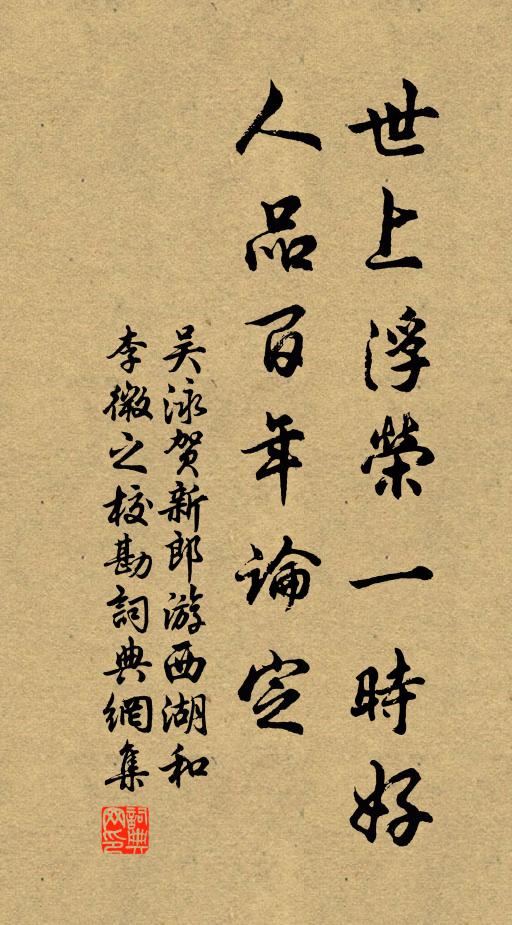 世上浮榮一時好
人品百年論定
吴泳贺新郎游西湖和
李微之校勘詞典網集
詞典网印